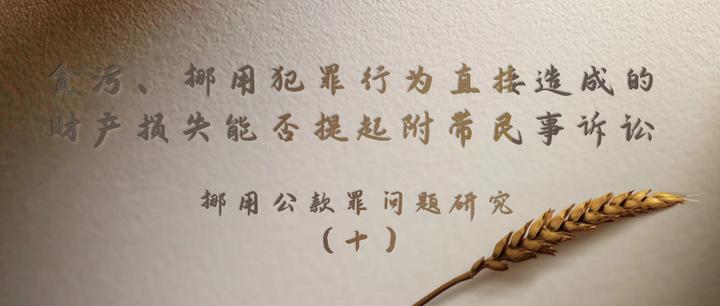 贪污、挪用犯罪行为直接造成的
财产损失能否提起附带民事诉讼
挪用公款罪问题研究
（十）